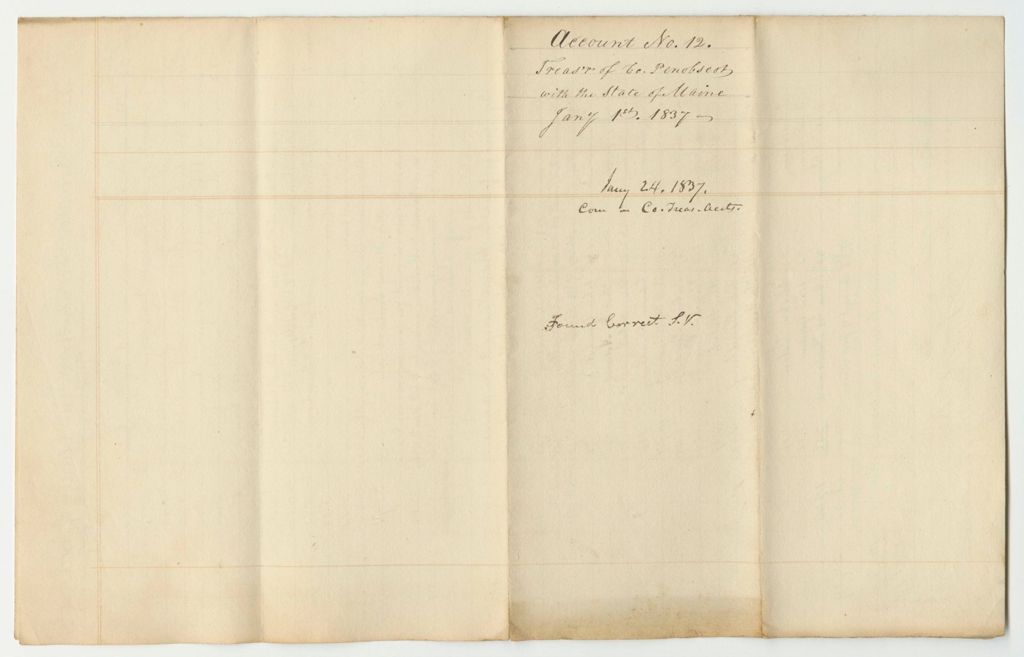 Account No. 12.
Treasr of Co. Penobscot
with the State of Maine
Jany 1st. 1837
Jany 24. 1837.
Com on Co. Treas. Accts.
Found Correct S.V.